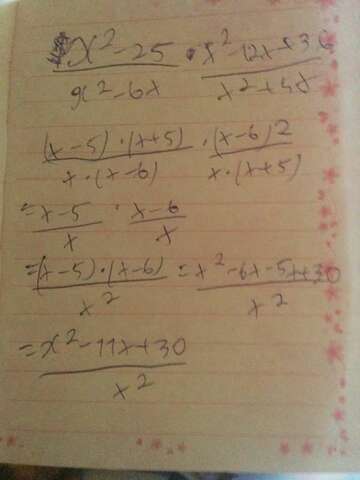 x² - 25 / x² - 6x · x² 12x + 36 / x² + 5x
(x - 5) · (x + 5) / x · (x - 6) · (x - 6)2 / x · (x + 5)
= x - 5 / x · x - 6 / x
= (x - 5) · (x - 6) / x² = x² - 6x - 5x + 30 / x²
= x² - 11x + 30 / x²